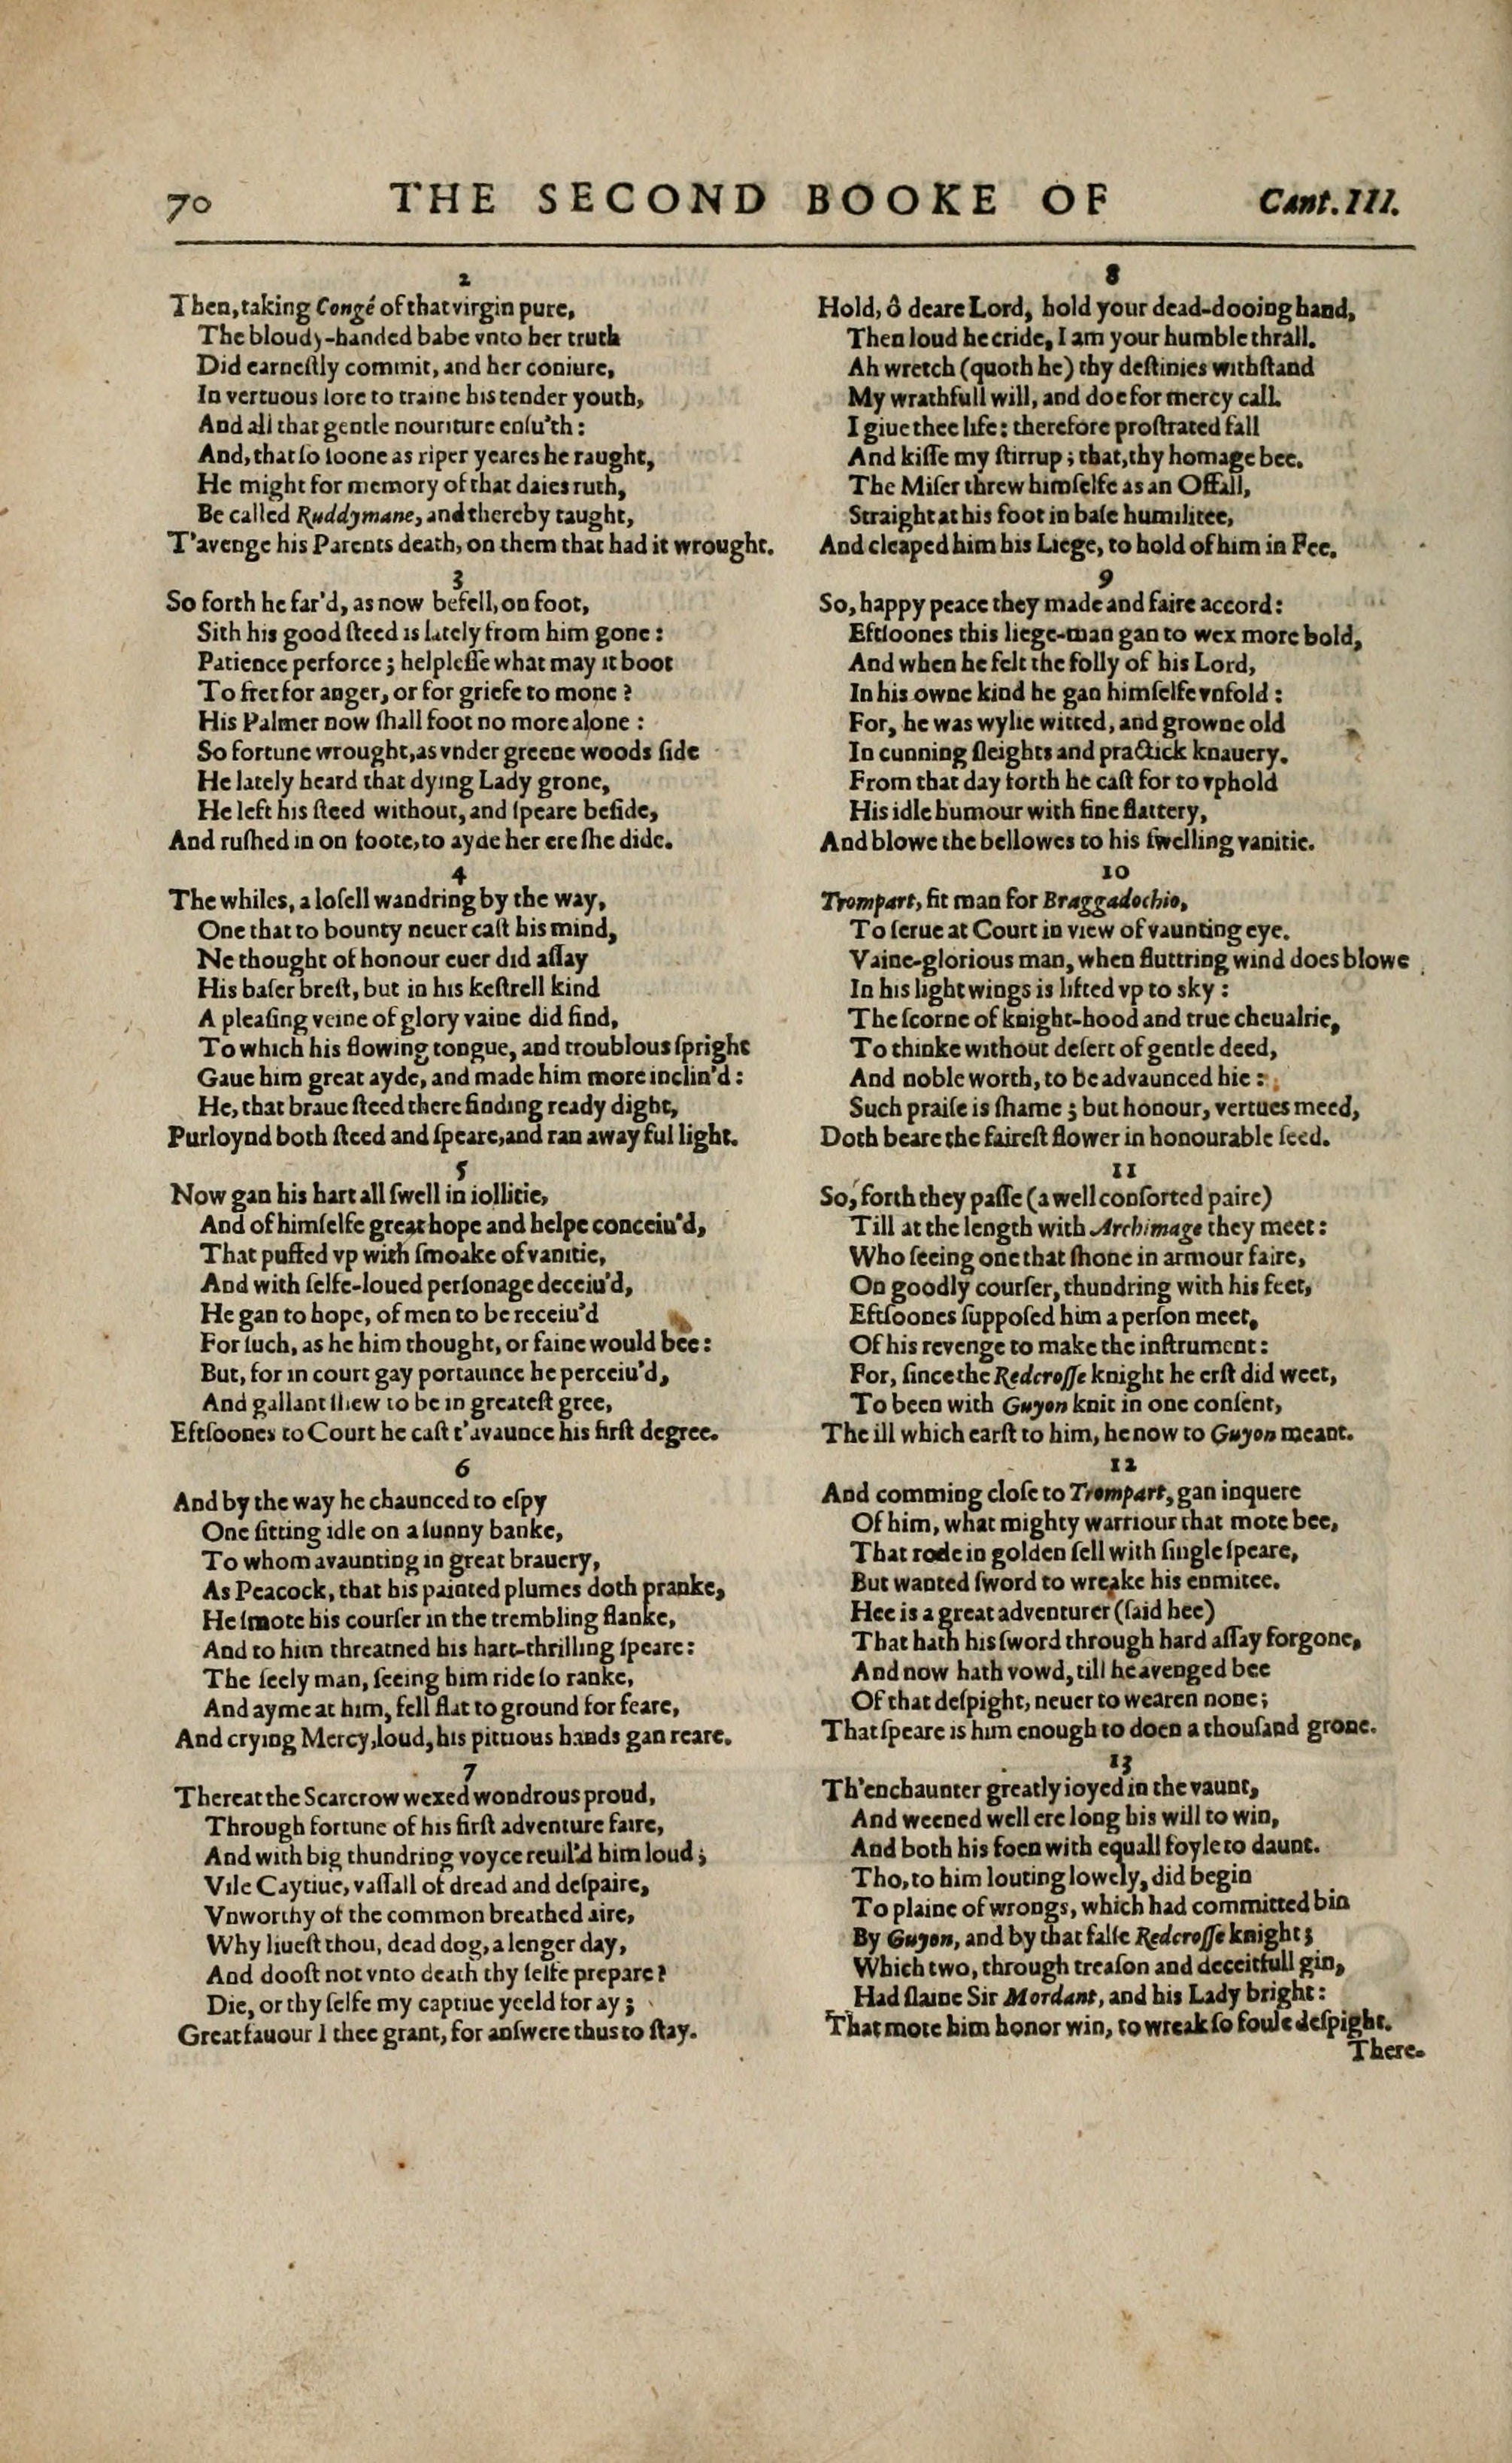 70 THE SECOND BOOKE OF Cant. III.
2
Then, taking Congé of that virgin pure,
The bloudy-handed babe vnto her truth
Did earneſtly commit, and her coniure,
In vertuous lore to traine his tender youth,
And all that gentle nouriture enſu'th:
And, that ſo ſoone as riper yeares he raught,
He might for memory of that daies ruth,
Be called Ruddymane, and thereby taught,
T'avenge his Parents death, on them that had it wrought.
3
So forth he far'd, as now befell, on foot,
Sith his good ſteed is lately from him gone:
Patience perforce; helpleſſe what may it boot
To fret for anger, or for griefe to mone?
His Palmer now ſhall foot no more alone:
So fortune wrought, as vnder greene woods ſide
He lately heard that dying Lady grone,
He left his ſteed without, and ſpeare beſide,
And ruſhed in on foote, to ayde her ere ſhe dide.
4
The whiles, a loſell wandring by the way,
One that to bounty neuer caſt his mind,
Ne thought of honour euer did aſſay
His baſer breſt, but in his keſtrell kind
A pleaſing veine of glory vaine did find,
To which his flowing tongue, and troublous ſpright
Gaue him great ayde, and made him more inclin'd:
He, that braue ſteed there finding ready dight,
Purloynd both ſteed and ſpeare, and ran away ful light.
5
Now gan his hart all ſwell in iollitie,
And of himſelfe great hope and helpe conceiu'd,
That puffed vp with ſmoake of vanitie,
And with ſelfe-loued perſonage deceiu'd,
He gan to hope, of men to be receiu'd
For ſuch, as he him thought, or faine would bee:
But, for in court gay portaunce he perceiu'd,
And gallant ſhew to be in greateſt gree,
Eftſoones to Court he caſt t'avaunce his firſt degree.
6
And by the way he chaunced to eſpy
One ſitting idle on a ſunny banke,
To whom avaunting in great brauery,
As Peacock, that his painted plumes doth pranke,
He ſmote his courſer in the trembling flanke,
And to him threatned his hart-thrilling ſpeare:
The ſeely man, ſeeing him ride ſo ranke,
And ayme at him, fell flat to ground for feare,
And crying Mercy, loud, his pittious hands gan reare.
7
Thereat the Scarcrow wexed wondrous proud,
Through fortune of his firſt adventure faire,
And with big thundring voyce reuil'd him loud;
Vile Caytiue, vaſſall of dread and deſpaire,
Vnworthy of the common breathed aire,
Why liueſt thou, dead dog, a lenger day,
And dooſt not vnto death thy ſelfe prepare?
Die, or thy ſelfe my captiue yeeld for ay;
Great fauour I thee grant, for anſwere thus to ſtay.
8
Hold, ô deare Lord, hold your dead-dooing hand,
Then loud he cride, I am your humble thrall.
Ah wretch (quoth he) thy deſtinies withſtand
My wrathfull will, and doe for mercy call.
I giue thee life: therefore proſtrated fall
And kiſſe my ſtirrup; that, thy homage bee.
The Miſer threw himſelfe as an Offall,
Straight at his foot in baſe humilitee,
And cleaped him his Liege, to hold of him in Fee.
9
So, happy peace they made and faire accord:
Eftſoones this liege-man gan to wex more bold,
And when he felt the folly of his Lord,
In his owne kind he gan himſelfe vnfold:
For, he was wylie witted, and growne old
In cunning ſleights and practick knauery.
From that day forth he caſt for to vphold
His idle humour with fine flattery,
And blowe the bellowes to his ſwelling vanitie.
10
Trompart, fit man for Braggadochio,
To ſerue at Court in view of vaunting eye.
Vaine-glorious man, when fluttring wind does blowe
In his light wings is lifted vp to sky:
The ſcorne of knight-hood and true cheualrie,
To thinke without deſert of gentle deed,
And noble worth, to be advaunced hie:
Such praiſe is ſhame; but honour, vertues meed,
Doth beare the faireſt flower in honourable ſeed.
11
So, forth they paſſe (a well conſorted paire)
Till at the length with Archimage they meet:
Who ſeeing one that ſhone in armour faire,
On goodly courſer, thundring with his feet,
Eftſoones ſuppoſed him a perſon meet,
Of his revenge to make the inſtrument:
For, ſince the Redcroſſe knight he erſt did weet,
To been with Guyon knit in one conſent,
The ill which earſt to him, he now to Guyon meant.
12
And comming cloſe to Trompart, gan inquere
Of him, what mighty warriour that mote bee,
That rode in golden ſell with ſingle ſpeare,
But wanted ſword to wreake his enmitee.
Hee is a great adventurer (ſaid hee)
That hath his ſword through hard aſſay forgone,
And now hath vowd, till he avenged bee
Of that deſpight, neuer to wearen none;
That ſpeare is him enough to doen a thouſand grone.
13
Th'enchaunter greatly ioyed in the vaunt,
And weened well ere long his will to win,
And both his foen with equall foyle to daunt.
Tho, to him louting lowely, did begin
To plaine of wrongs, which had committed bin
By Guyon, and by that falſe Redcroſſe knight;
Which two, through treaſon and deceitfull gin,
Had ſlaine Sir Mordant, and his Lady bright:
That mote him honor win, to wreak ſo foule deſpight.
There.